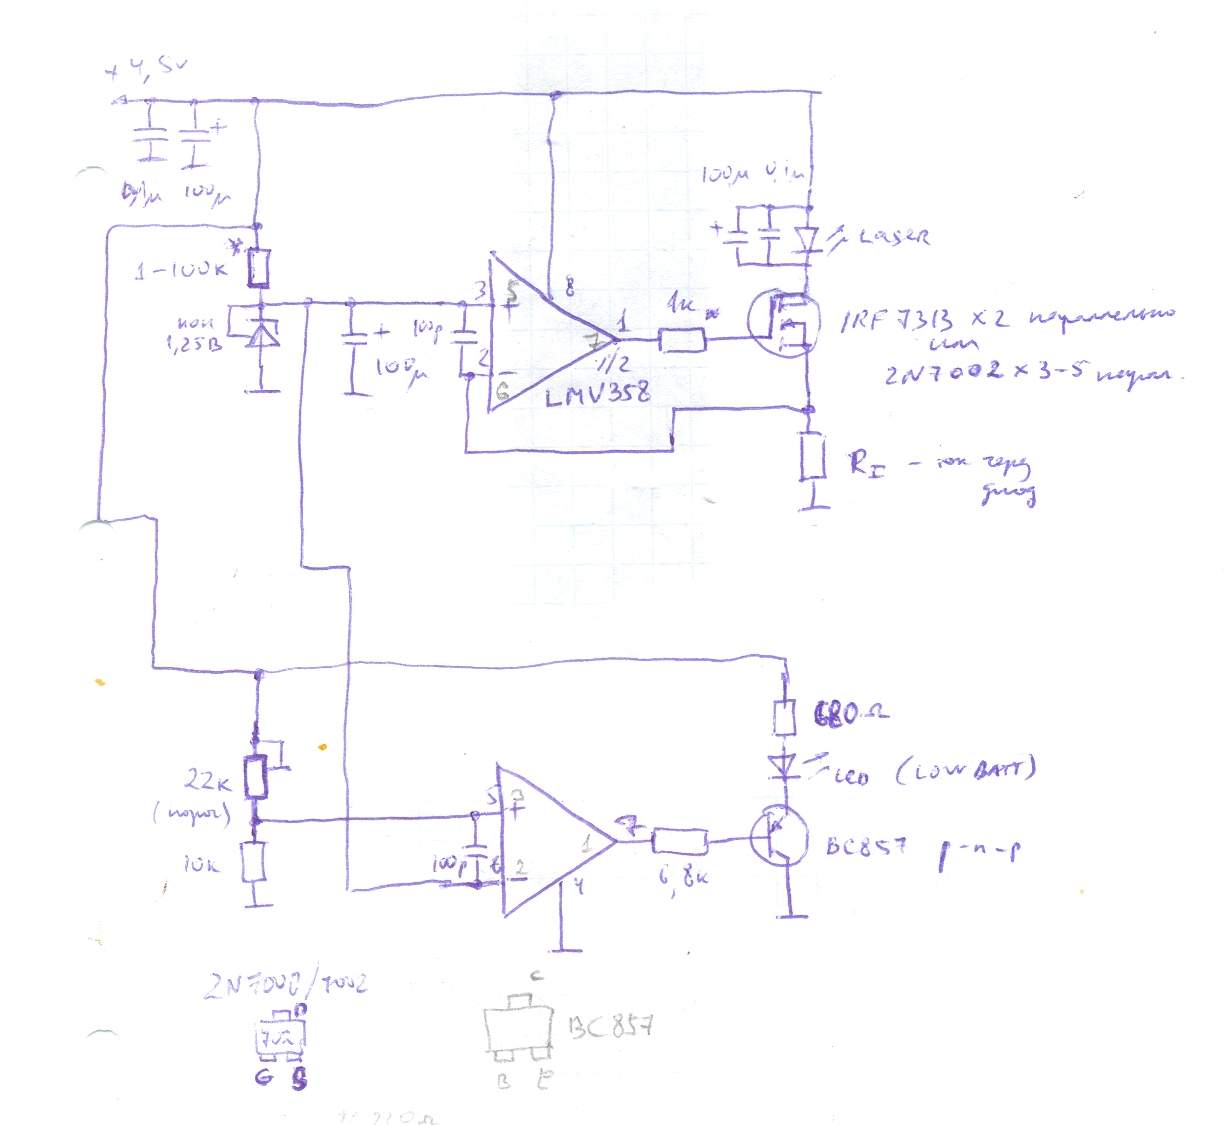 +4,5v
0,1μ 100μ
+
100μ 0,1μ
+
*
1-100к
LASER
ион
1,25В
+
100μ
100p
3 5 +
8
2 6 -
7 1
1/2
LMV358
1к *
IRF7313 x2 параллельно
или
2N7002 x 3-5 паралл.
RI - ток через
диод
680Ω
LED (LOWBATT)
22к
(порог)
10к
5 3 +
100p
6 2 -
1 7
4
6,8к
BC857 p-n-p
2N7002/7002
D
702
G S
C
BC857
B E